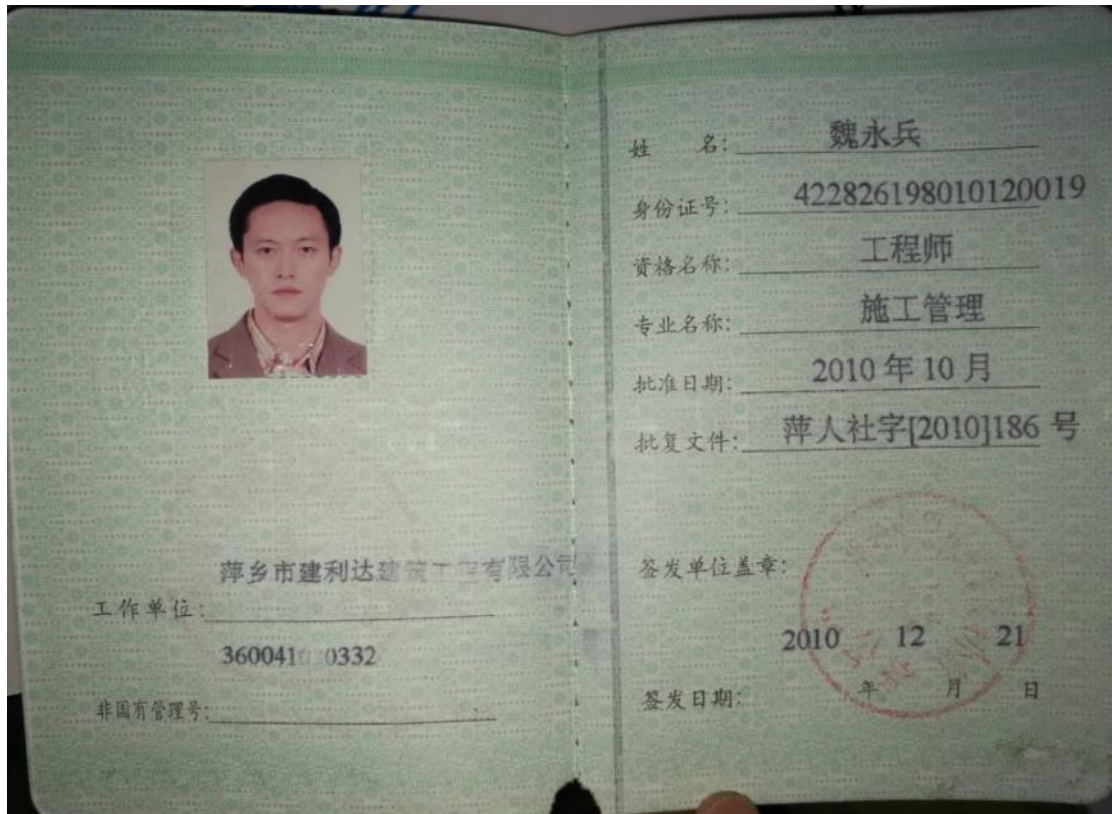 萍乡市建利达建筑工程有限公司
工作单位:
3600410 0332
非国有管理号:
姓 名: 魏永兵
身份证号: 422826198010120019
资格名称: 工程师
专业名称: 施工管理
批准日期: 2010 年 10 月
批复文件: 萍人社字[2010]186 号
签发单位盖章:
2010 12 21
签发日期: 年 月 日